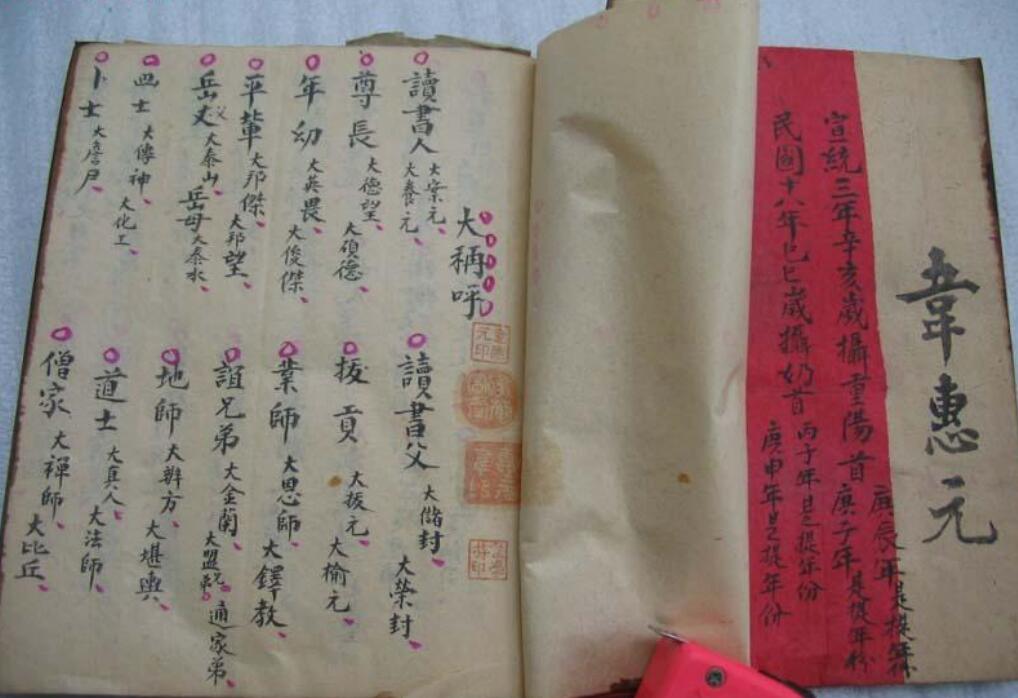 韋惠元
宣統三年辛亥歲攝重陽首庚子年是提年份
庚辰年是提年份
民國十八年己巳歲攝奶首丙子年是提年份
庚申年是提年份
大稱呼
讀書人 大案元 大養元
讀書父 大儲封 大榮封
尊長 大德望 大碩德
拔貢 大拔元 大榆元
年幼 大英畏 大俊傑
業師 大恩師 大鐸教
平輩 大邦傑 大邦望
誼兄弟 大金蘭 大盟兄弟 通家弟
岳丈 大泰山 岳母 大泰水
地師 大辨方 大堪輿
画士 大傳神 大化工
道士 大真人 大法師
卜士 大詹尹
僧家 大禪師 大比丘